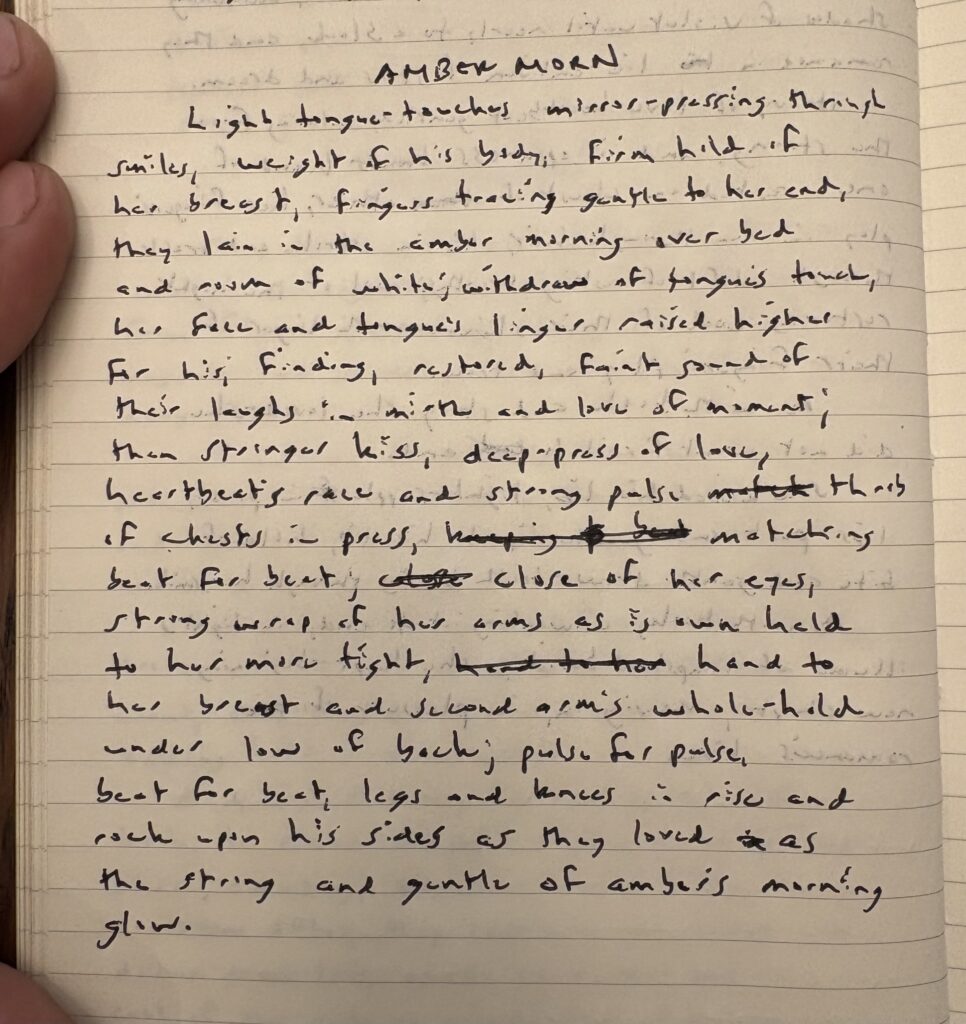 AMBER MORN
Light tongue-touches mirror-pressing through
smiles, weight of his body, firm hold of
her breast, fingers tracing gentle to her end,
they lain in the amber morning over bed
and room of white; withdraw of tongue's touch,
her face and tongue's linger raised higher
for his, finding, restored, faint sound of
their laughs in mirth and love of moment;
then stronger kiss, deep-press of love,
heartbeat's race and strong pulse match throb
of chests in press, keeping beat matching
beat for beat; close close of her eyes,
strong wrap of her arms as is own held
to her more tight, hand to her hand to
her breast and second arm's whole-hold
under low of back; pulse for pulse,
beat for beat, legs and knees in rise and
rock upon his sides as they loved as
the strong and gentle of amber's morning
glow.